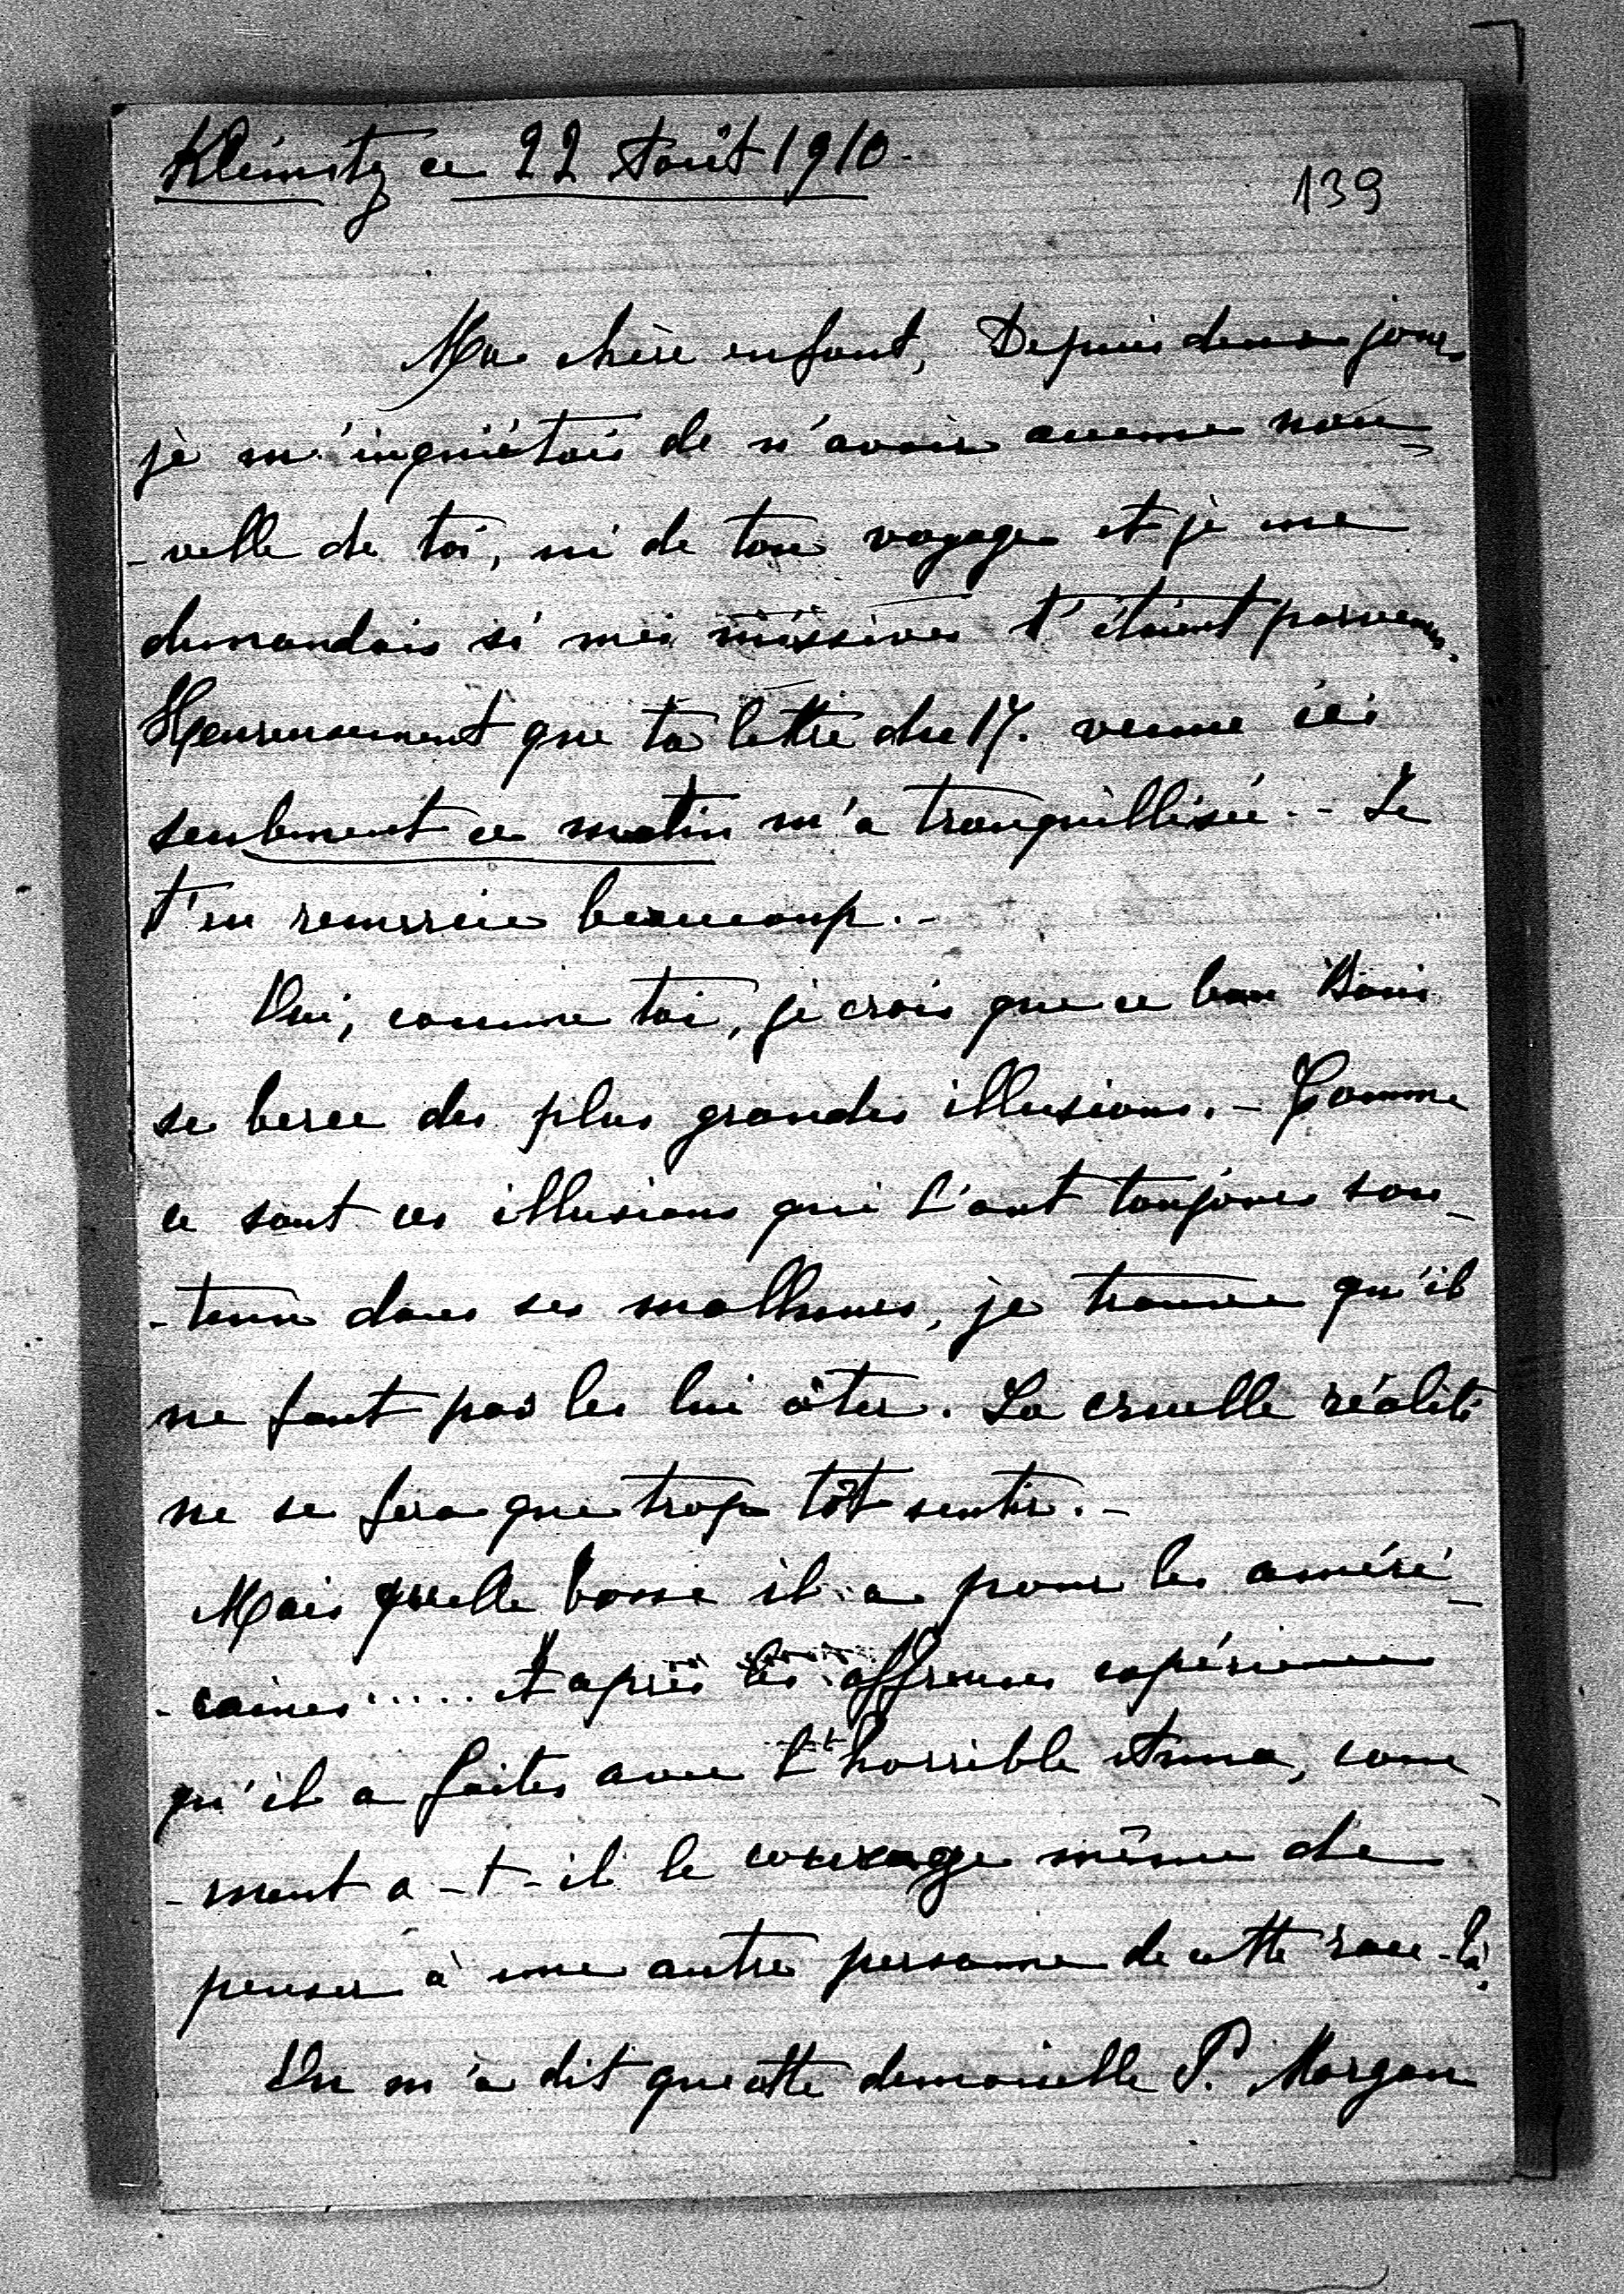 Kleinitz ce 22 Août 1910.
139
Ma chère enfant, Depuis deux jours
je m'inquiétais de n'avoir aucune nou-
-velle de toi, ni de ton voyage et je me
demandais si mes missives t'étaient parvenues.
Heureusement que ta lettre du 17. venue ici
seulement ce matin m'a tranquillisée. - Je
t'en remercie beaucoup. -
Oui, comme toi, je crois que ce bon Boni
se berce des plus grandes illusions. - Comme
ce sont ces illusions qui l'ont toujours sou-
-tenu dans ses malheurs, je trouve qu'il
ne faut pas les lui ôter. La cruelle réalité
ne se fera que trop tôt sentir. -
Mais quelle bosse il a pour les améri-
-caines ..... et après les affreuses expériences
qu'il a faites avec l'horrible Anna, com-
-ment a-t-il le courage même de
penser à une autre personne de cette race-là.
On m'a dit que cette demoiselle P. Morgan